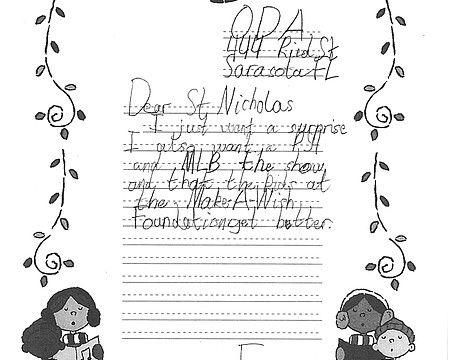 OPA
Sarasota FL
Dear St Nicholas
I just want a surprise
I also want a
and MLB the show,
and that the kids at
the Make-A-Wish
Foundation get better.